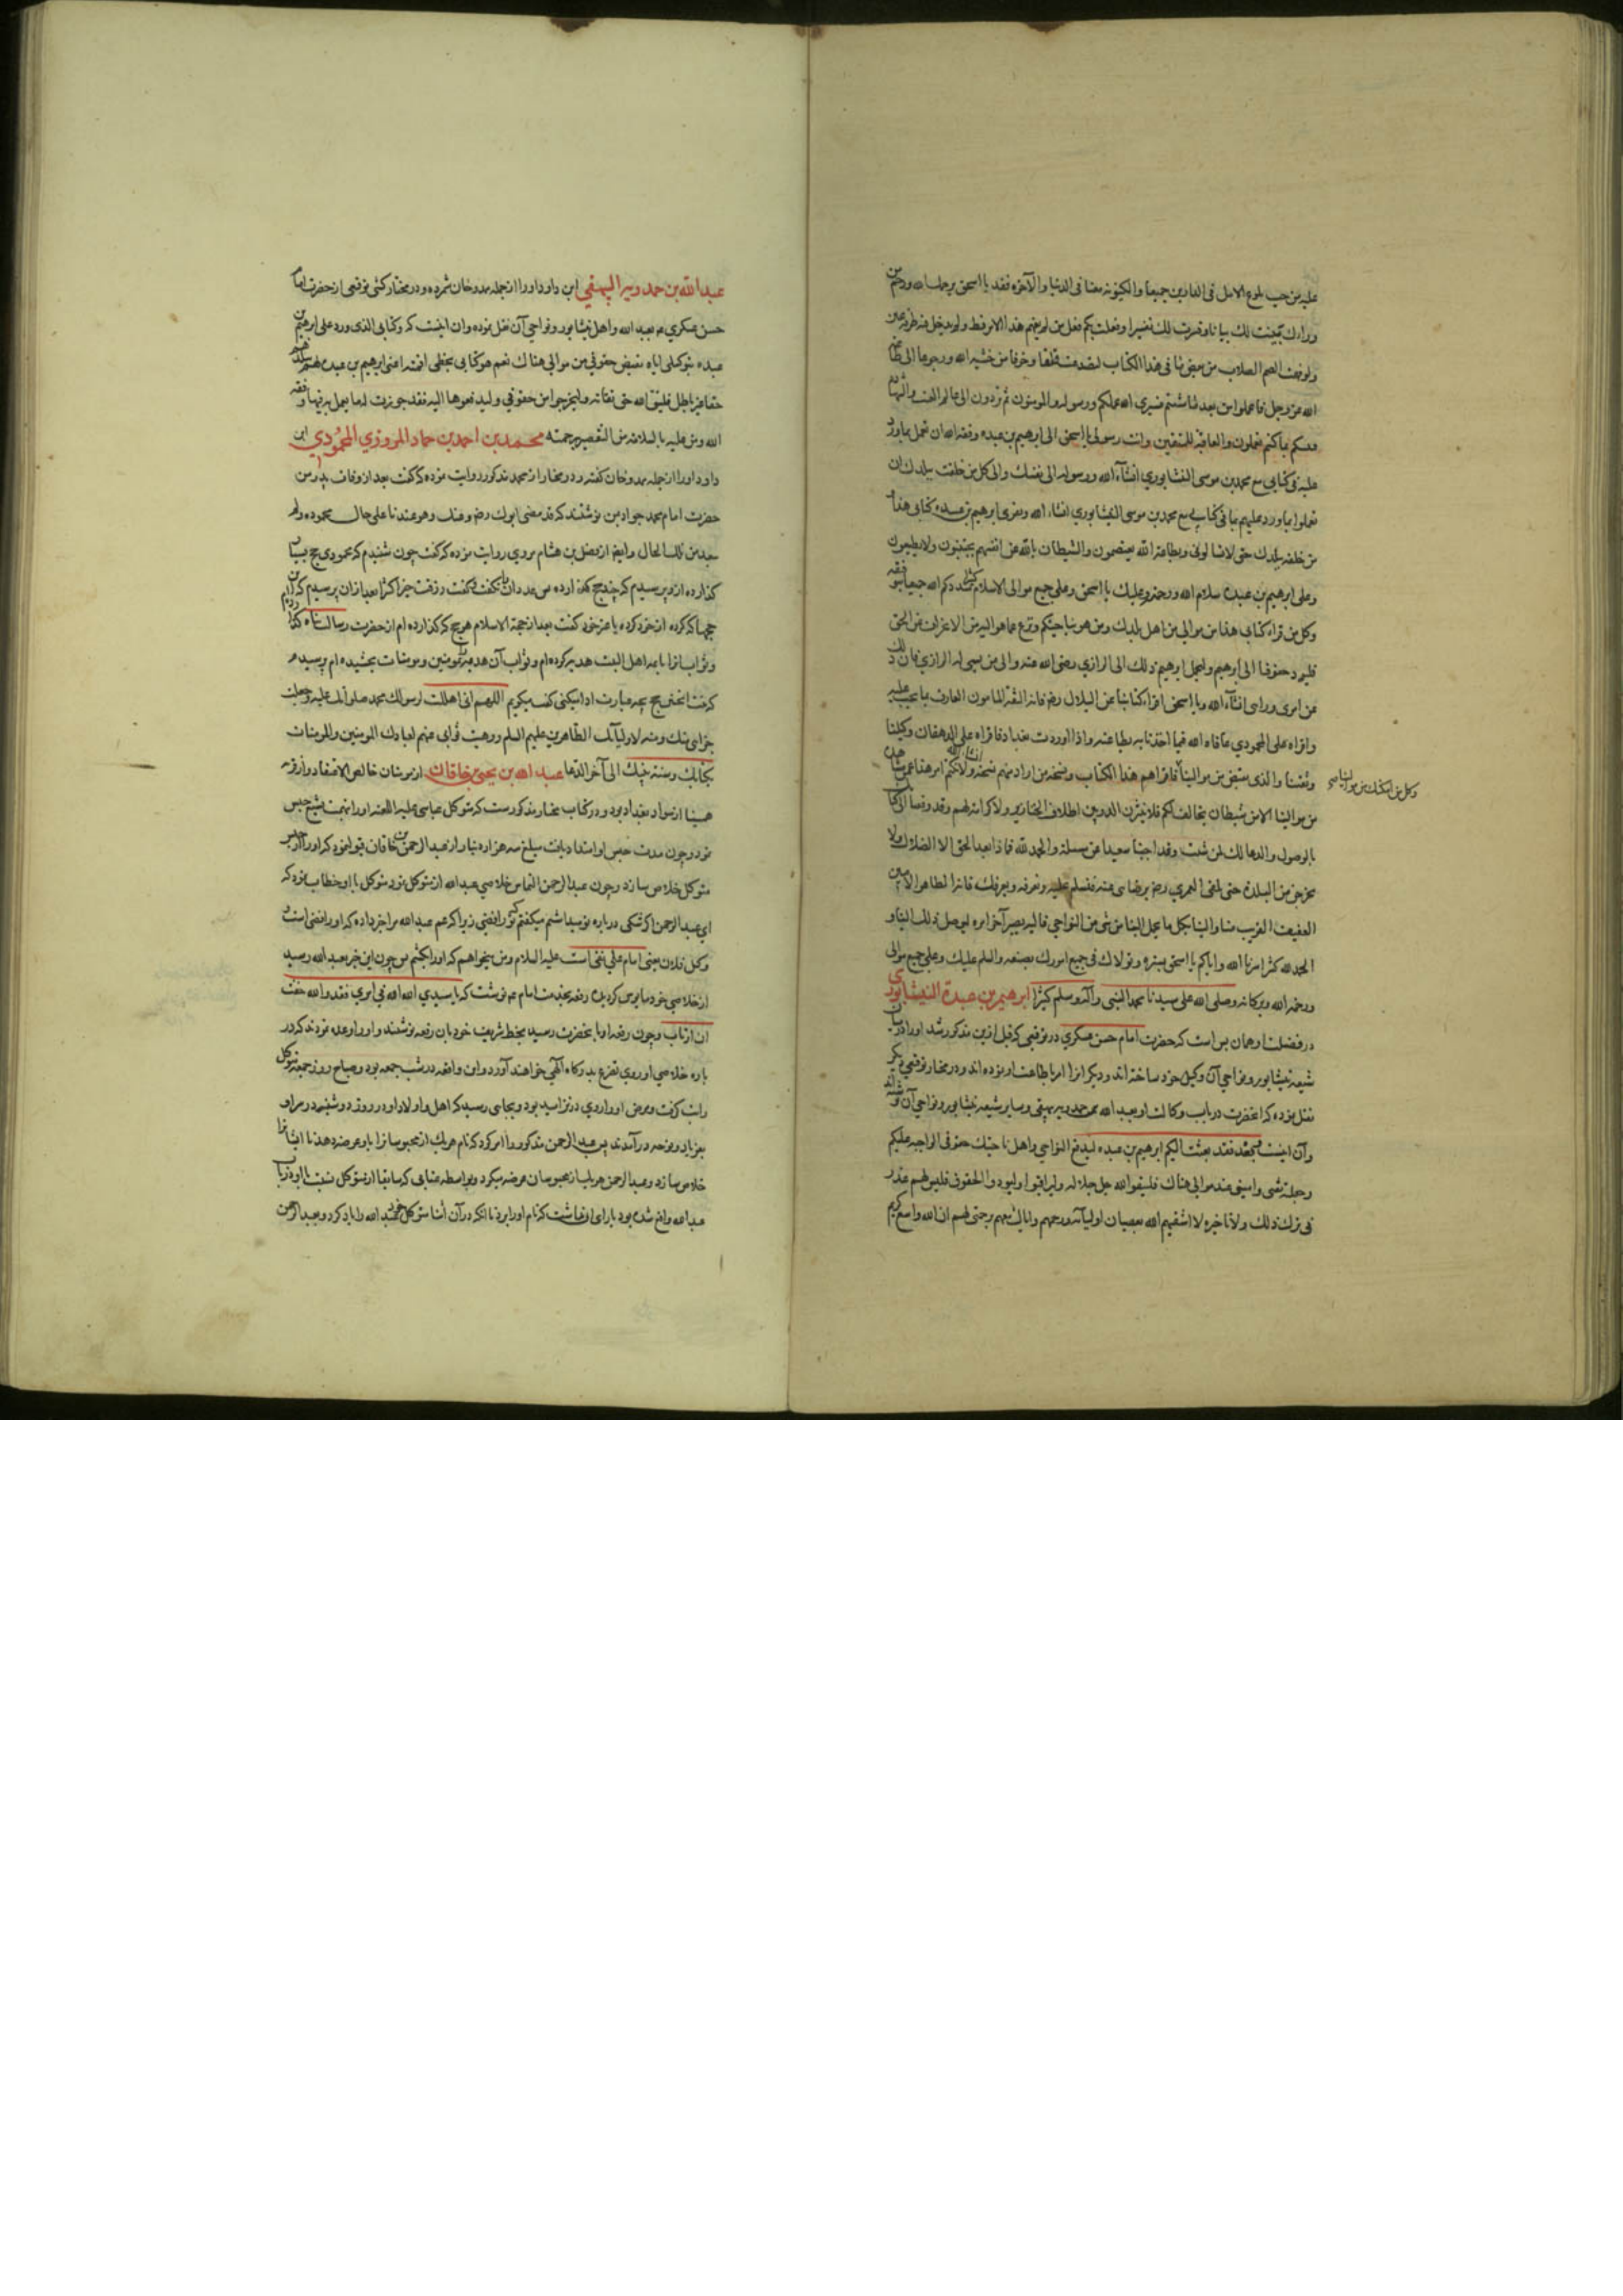 عليه من حب بلوغ الامل فی الدارين جميعا والكينونه معنا فی الدنيا والآخره فقد يا اسحق يرحمك الله ورحم من
وراءك بينت لك بيانا وفسرت لك تفسيرا وفعلت بكم فعل من لم يفهم هذا الامر قط ولم يدخل فيه طرفة عين
ولو فهمت الصم الصلاب بعض ما فی هذا الكتاب لتصدعت قلقا وخوفا من خشية الله ورجوعا الی طاعة
الله عز وجل فاعملوا من بعد ما شئتم فسيری الله عملكم ورسوله والمومنون ثم تردون الی عالم الغيب والشهادة
فينبئكم بما كنتم تعملون والعاقبة للمتقين وانت رسولی يا اسحق الی ابرهيم بن عبده وفقه الله ان يعمل بما ورد
عليه فی كتابی مع محمد بن موسی النيشابوري انشاء الله ورسولی الی نفسك والی كل من خلفت ببلدك ان
تعملوا بما ورد عليكم فی كتابی مع محمد بن موسی النيشابوري انشاء الله ويقری ابرهيم بن عبده كتابی هذا
من خلفه ببلدك حتی لا يتسالونی وبطاعة الله يعتصمون والشيطان بالله عن انفسهم يجتنبون ولا يطيعون
وعلی ابرهيم بن عبده سلام الله ورحمته وعليك يا اسحق وعلی جميع موالی السلام كثيرا سددكم الله جميعا بتوفيقه
وكل من قراء كتابنا هذا من موالی من اهل بلدك ومن هو بناحيتكم ونزع عما هو اليه من الانحراف عن الحق
فليود حقوقنا الی ابرهيم وليحمل ابرهيم ذلك الی الرازي رضی الله عنه والی من يسمی له الرازي فان ذلك
عن امری ورایی انشاء الله ويا اسحق اقرا كتابنا علی البلالی رضی فانه الثقة المامون العارف بما يجب عليه
واقراه علی المحمودي عافاه الله فما احمدنا له بطاعته واذا وردت بغداد فاقراه علی الدهقان وكيلنا
وثقتنا والذی يقبض من موالينا
وكل من امكنك من موالينا
من موالينا الا من شيطان يخالف لكم فلا تنثرن الدر بين اطلاف الخنازير ولا كرامة لهم وقد وقعنا فی كتابك
بالوصول والدعا لك ولمن شئت وقد اجبنا سعيدا عن مسئلته والحمد لله فماذا بعد الحق الا الضلال فلا
تخرجن من البلدة حتی تلقی العمري رضی برضای عنه فتسلم عليه وتعرفه ويعرفك فانه الطاهر الامين
العفيف القريب منا والينا فكل ما يحمل الينا من شی من النواحی فاليه يصير آخر امره ليوصل ذلك الينا و
الحمد لله كثيرا سترنا الله واياكم يا اسحق بستره وتولاك فی جميع امورك بصنعه والسلم عليك وعلی جميع موالی
ورحمة الله وبركاته وصلی الله علی سيدنا محمد النبی وآله وسلم كثيرا ابرهيم بن عبدة النيشابوری
در فضيلت او همان بس است كه حضرت امام حسن عسكري در توقيعی كه قبل ازين مذكور شد او را در ميان
شيعه نيشابور ونواحی آن وكيل خود ساخته اند وديگرانرا امر باطاعت او نموده اند ودر مختار توقيعی ديگر
نقل نموده كه آنحضرت در باب وكالت او بعبد الله بن حمدويه بيهقی وساير شيعه نيشابور ونواحی آن نوشته اند
وآن اينست وبعد فقد بعثت اليكم ابرهيم بن عبده ليدفع النواحی واهل ناحيتك حقوقی الواجبه عليكم
وجعلته ثقتی وامينی عند موالی هناك فليتقوا الله جل جلاله وليراقبوا وليودوا الحقوق فليس لهم عذر
فی ترك ذلك ولا تاخيره لا اشقاهم الله بعصيان اوليائه ورحمهم واياك معهم برحمتی لهم ان الله واسع كريم
عبد الله بن حمدويه البيهقي ابن داود او را از جمله ممدوحان شمرده ودر مختار كشی توقيعی از حضرت امام
حسن عسكري بعبد الله واهل نيشابور ونواحی آن نقل نموده وآن اينست كه وكتابی الذی ورد علی ابرهيم بن
عبده بتوكيلی اياه بقبض حقوقی من موالی هناك نعم هو كتابی بخطی اقمته اعنی ابرهيم بن عبده لهم ببلدهم
حقا غير باطل فليتقوا الله حق تقاته وليخرجوا من حقوقی وليدفعوها اليه فقد جوزت له ما يعمل به فيها وفقه
الله ومن عليه بالسلامة من التقصير برحمته محمد بن احمد بن حماد المروزي المحمودي ابن
داود او را از جمله ممدوحان گفته ودر مختار از محمد مذكور روايت نموده كه گفت بعد از وفات پدر من
حضرت امام محمد جواد بمن نوشتند كه قد مضی ابوك رضی وعنك وهو عندنا علی حال محموده ولم
يبعد من تلك الحال وايضا از فضل بن هشام هروي روايت نموده كه گفت چون شنيدم كه محمودی حج بسيار
گذارده ازو پرسيدم كه چند حج گذارده پس عدد آن نگفت گفت رزقت خيرا كثيرا بعد ازان پرسيدم كه اين
حجها كه كرده از خود كرده يا غير خود گفت بعد از حجة الاسلام هر حج كه گذارده ام از حضرت رسالت پناه كرده ام
وثواب آنرا بايمه اهل البيت هديه كرده ام وثواب آن هديه بمومنين ومومنات بخشيده ام پرسيدم
كه نيت آنچنين حج بچه عبارت ادا ميكنی گفت ميگويم اللهم انی اهللت لرسولك محمد صلی الله عليه وجعلت
جزای منك ومنه لاوليائك الطاهرين عليهم السلم ووهبت ثوابی عنهم لعبادك المومنين والمومنات
بكتابك وسنة نبيك الی آخر الدعا عبد الله بن يحيی بن خاقان از مومنان خالص الاعتقاد واز قريه
از سواد بغداد بود ودر كتاب مختار مذكورست كه متوكل عباسی عليه اللعنه او را بتهمت تشيع حبس
نمود وچون مدت حبس او امتداد يافت مبلغ سه هزار دينار از عبد الرحمن بن خاقان قبول نمود كه او را از حبس
متوكل خلاص سازد وچون عبد الرحمن التماس خلاصی عبد الله از متوكل نمود متوكل با او خطاب نمود كه
ای عبد الرحمن اگر شكی در باره تو ميداشتم ميگفتم كه تو رافضی زيرا كه عم عبد الله مرا خبر داده كه او رافضی است
وكيل فلان يعنی امام علی نقی است عليه السلام ومن ميخواهم كه او را بكشم پس چون اين خبر بعبد الله رسيد
از خلاصی خود مايوس گرديده رقعه بخدمت امام نوشت كه يا سيدي الله الله فی امری فقد والله خفت
ان ارتاب وچون رقعه او بآنحضرت رسيد بخط شريف خود بان رقعه نوشتند واو را وعده نمودند كه در
باره خلاصی او روی تضرع بدرگاه الهی خواهند آورد واين واقعه در شب جمعه بود وصباح روز جمعه متوكل
را تب گرفت ومرض او در تزايد بود وبجايی رسيد كه اهل واولاد او در روز دوشنبه در سرای او
بفرياد ونوحه درآمدند پس عبد الرحمن مذكور را امر كرد كه نام هر يك از محبوسانرا باو عرضه دهد تا ايشانرا
خلاص سازد وعبد الرحمن هر يك از محبوسان عرضه ميكرد وبواسطه عتابی كه سابقا از متوكل نسبت باو در باب
عبد الله واقع شده بود يارای او نداشت كه نام او را برد تا آنكه در آن اثنا متوكل خود عبد الله را ياد كرد وبعبد الرحمن